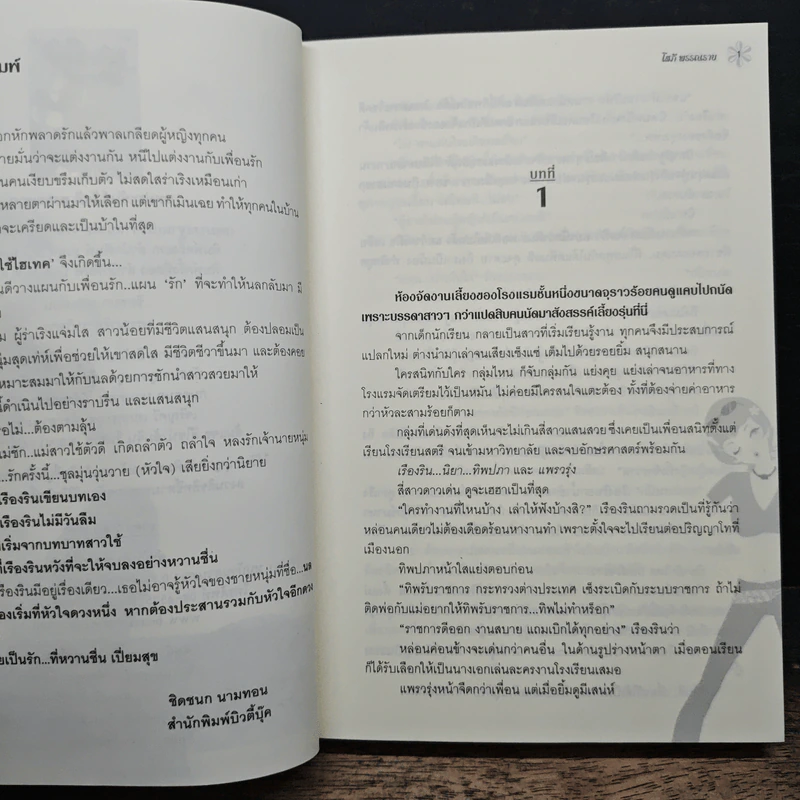 มพ์
อกหักพลาดรักแล้วพาลเกลียดผู้หญิงทุกคน
ายมั่นว่าจะแต่งงานกัน หนีไปแต่งงานกับเพื่อนรัก
นคนเงียบขรึมเก็บตัว ไม่สดใสร่าเริงเหมือนเก่า
หลายตาผ่านมาให้เลือก แต่เขาก็เมินเฉย ทำให้ทุกคนในบ้าน
จะเครียดและเป็นบ้าในที่สุด
ใช้ไฮเทค’ จึงเกิดขึ้น...
นดีวางแผนกับเพื่อนรัก..แผน ‘รัก’ ที่จะทำให้นลกลับมา มี
ม ผู้ร่าเริงแจ่มใส สาวน้อยที่มีชีวิตแสนสนุก ต้องปลอมเป็น
นุ่มสุดเท่ห์เพื่อช่วยให้เขาสดใส มีชีวิตชีวาขึ้นมา และต้องคอย
เหมาะสมมาให้กับนลด้วยการชักนำสาวสวยมาให้
ี้ดำเนินไปอย่างราบรื่น และแสนสนุก
รือไม่...ต้องตามลุ้น
ม่ซัก...แม่สาวใช้ตัวดี เกิดถลำตัว ถลำใจ หลงรักเจ้านายหนุ่ม
...รักครั้งนี้...ชุลมุนวุ่นวาย (หัวใจ) เสียยิ่งกว่านิยาย
เรืองรินเขียนบทเอง
่เรืองรินไม่มีวันลืม
่เริ่มจากบทบาทสาวใช้
ที่เรืองรินหวังที่จะให้จบลงอย่างหวานชื่น
รืองรินมีอยู่เรื่องเดียว...เธอไม่อาจรู้หัวใจของชายหนุ่มที่ชื่อ...นล
องเริ่มที่หัวใจดวงหนึ่ง หากต้องประสานรวมกับหัวใจอีกดวง
ยเป็นรัก...ที่หวานชื่น เปี่ยมสุข
ชิดชนก นามทอน
สำนักพิมพ์บิวตี้บุ๊ค
โสภี พรรณราย 1
บทที่
1
ห้องจัดงานเลี้ยงของโรงแรมชั้นหนึ่งขนาดจุราวร้อยคนดูแคบไปถนัด
เพราะบรรดาสาวๆ กว่าแปดสิบคนนัดมาสังสรรค์เลี้ยงรุ่นที่นี่
จากเด็กนักเรียน กลายเป็นสาวที่เริ่มเรียนรู้งาน ทุกคนจึงมีประสบการณ์
แปลกใหม่ ต่างนำมาเล่าจนเสียงเซ็งแซ่ เต็มไปด้วยรอยยิ้ม สนุกสนาน
ใครสนิทกับใคร กลุ่มไหน ก็จับกลุ่มกัน แย่งคุย แย่งเล่าจนอาหารที่ทาง
โรงแรมจัดเตรียมไว้เป็นหมัน ไม่ค่อยมีใครสนใจแตะต้อง ทั้งที่ต้องจ่ายค่าอาหาร
กว่าหัวละสามร้อยก็ตาม
กลุ่มที่เด่นดังที่สุดเห็นจะไม่เกินสี่สาวแสนสวย ซึ่งเคยเป็นเพื่อนสนิทตั้งแต่
เรียนโรงเรียนสตรี จนเข้ามหาวิทยาลัย และจบอักษรศาสตร์พร้อมกัน
เรืองริน...นิยา...ทิพปภา และ แพรวรุ่ง
สี่สาวดาวเด่น ดูจะเฮฮาเป็นที่สุด
“ใครทำงานที่ไหนบ้าง เล่าให้ฟังบ้างสิ?” เรืองรินถามรวดเป็นที่รู้กันว่า
หล่อนคนเดียวไม่ต้องเดือดร้อนหางานทำ เพราะตั้งใจจะไปเรียนต่อปริญญาโทที่
เมืองนอก
ทิพปภาหน้าใสแย่งตอบก่อน
“ทิพรับราชการ กระทรวงต่างประเทศ เซ็งระเบิดกับระบบราชการ ถ้าไม่
ติดพ่อกับแม่อยากให้ทิพรับราชการ...ทิพไม่ทำหร็อก”
“ราชการดีออก งานสบาย แถมเบิกได้ทุกอย่าง” เรืองรินว่า
หล่อนค่อนข้างจะเด่นกว่าคนอื่น ในด้านรูปร่างหน้าตา เมื่อตอนเรียน
ก็ได้รับเลือกให้เป็นนางเอกเล่นละครงานโรงเรียนเสมอ
แพรวรุ่งหน้าจืดกว่าเพื่อน แต่เมื่อยิ้มดูมีเสน่ห์